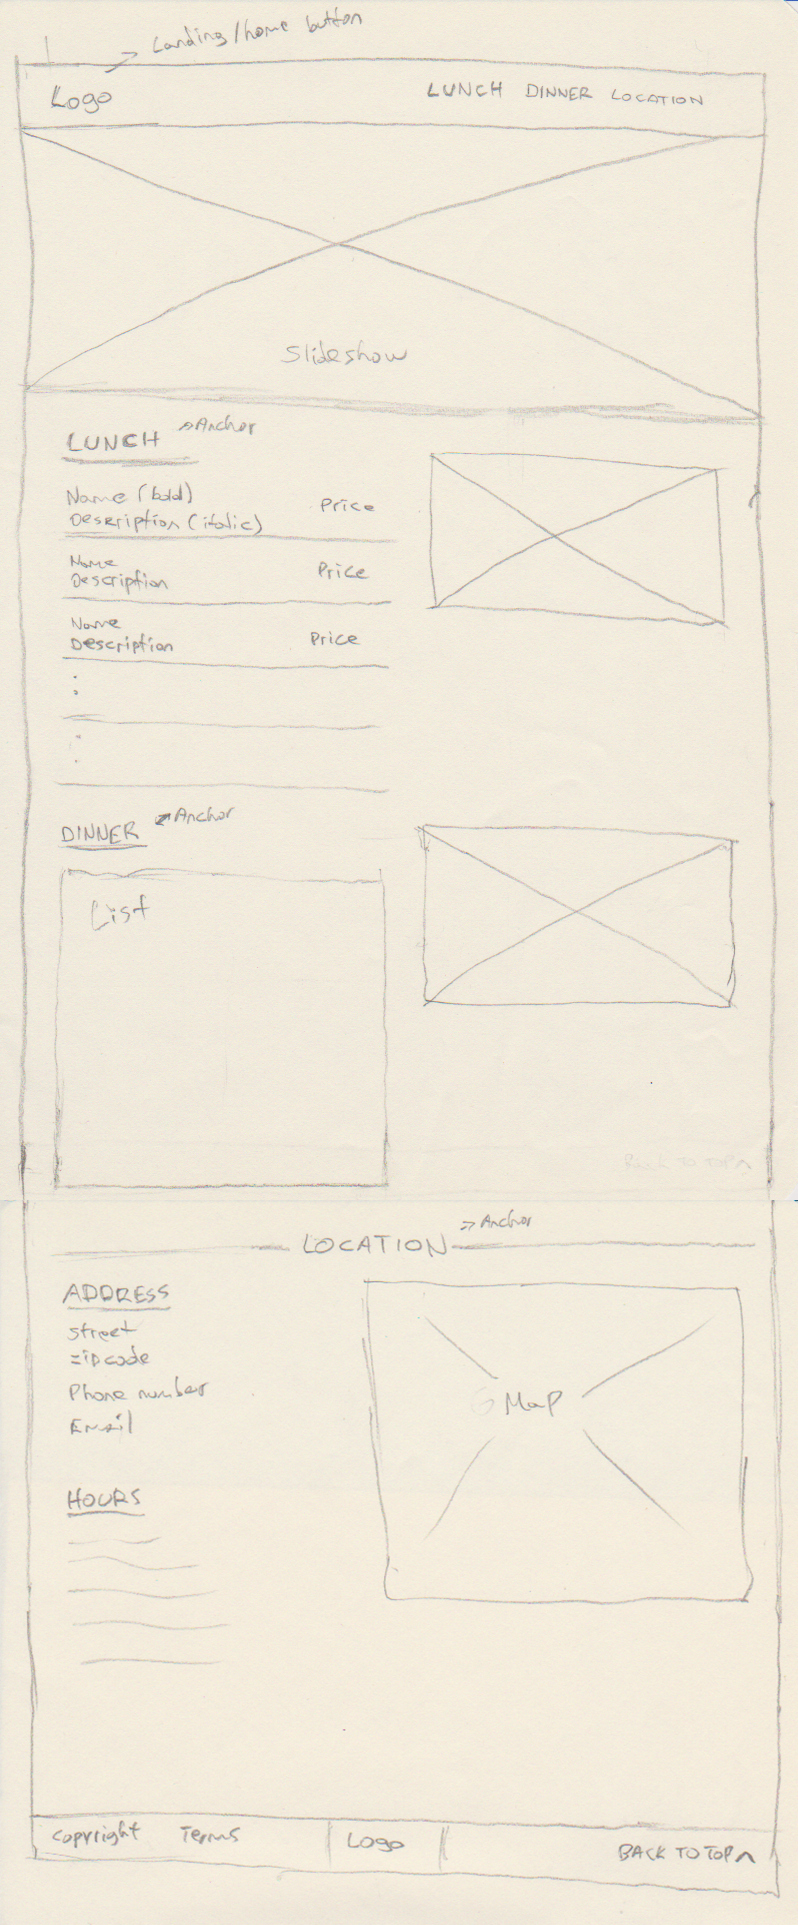 Landing/home button
Logo
LUNCH DINNER LOCATION
Slideshow
LUNCH
Anchor
Name (bold)
Description (italic)
Price
Name
Description
Price
Name
Description
Price
DINNER
Anchor
List
Back TO TOP
LOCATION
Anchor
ADDRESS
street
zipcode
Phone number
Email
G Map
HOURS
copyright Terms
Logo
BACK TO TOP